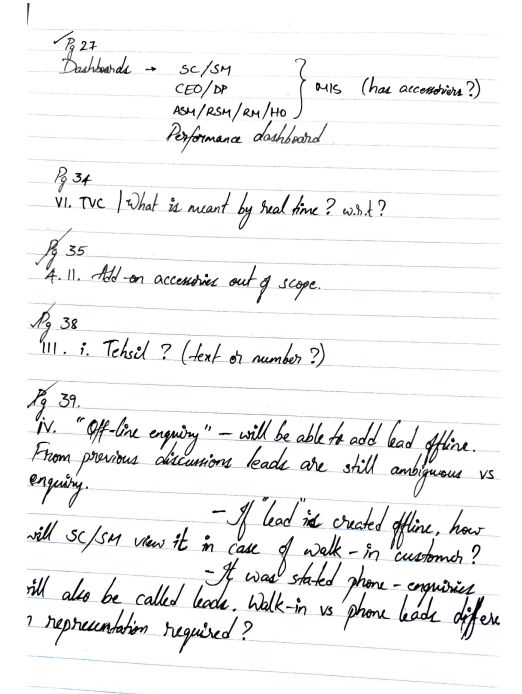 Pg 27
Dashboards → SC/SM
CEO/DP } MIS (has accessories?)
ASM/RSM/RM/HO
Performance dashboard
Pg 34
VI. TVC | What is meant by real time? w.r.t?
Pg 35
4. 11. Add-on accessories out of scope.
Pg 38
III. i. Tehsil ? (text or number?)
Pg 39.
iv. "Off-line enquiry" - will be able to add lead offline.
From previous discussions leads are still ambiguous vs
enquiry.
- If "lead" is created offline, how
will SC/SM view it in case of walk-in customer?
- It was stated phone-enquiries
ill also be called leads. Walk-in vs phone leads differe
n representation required?